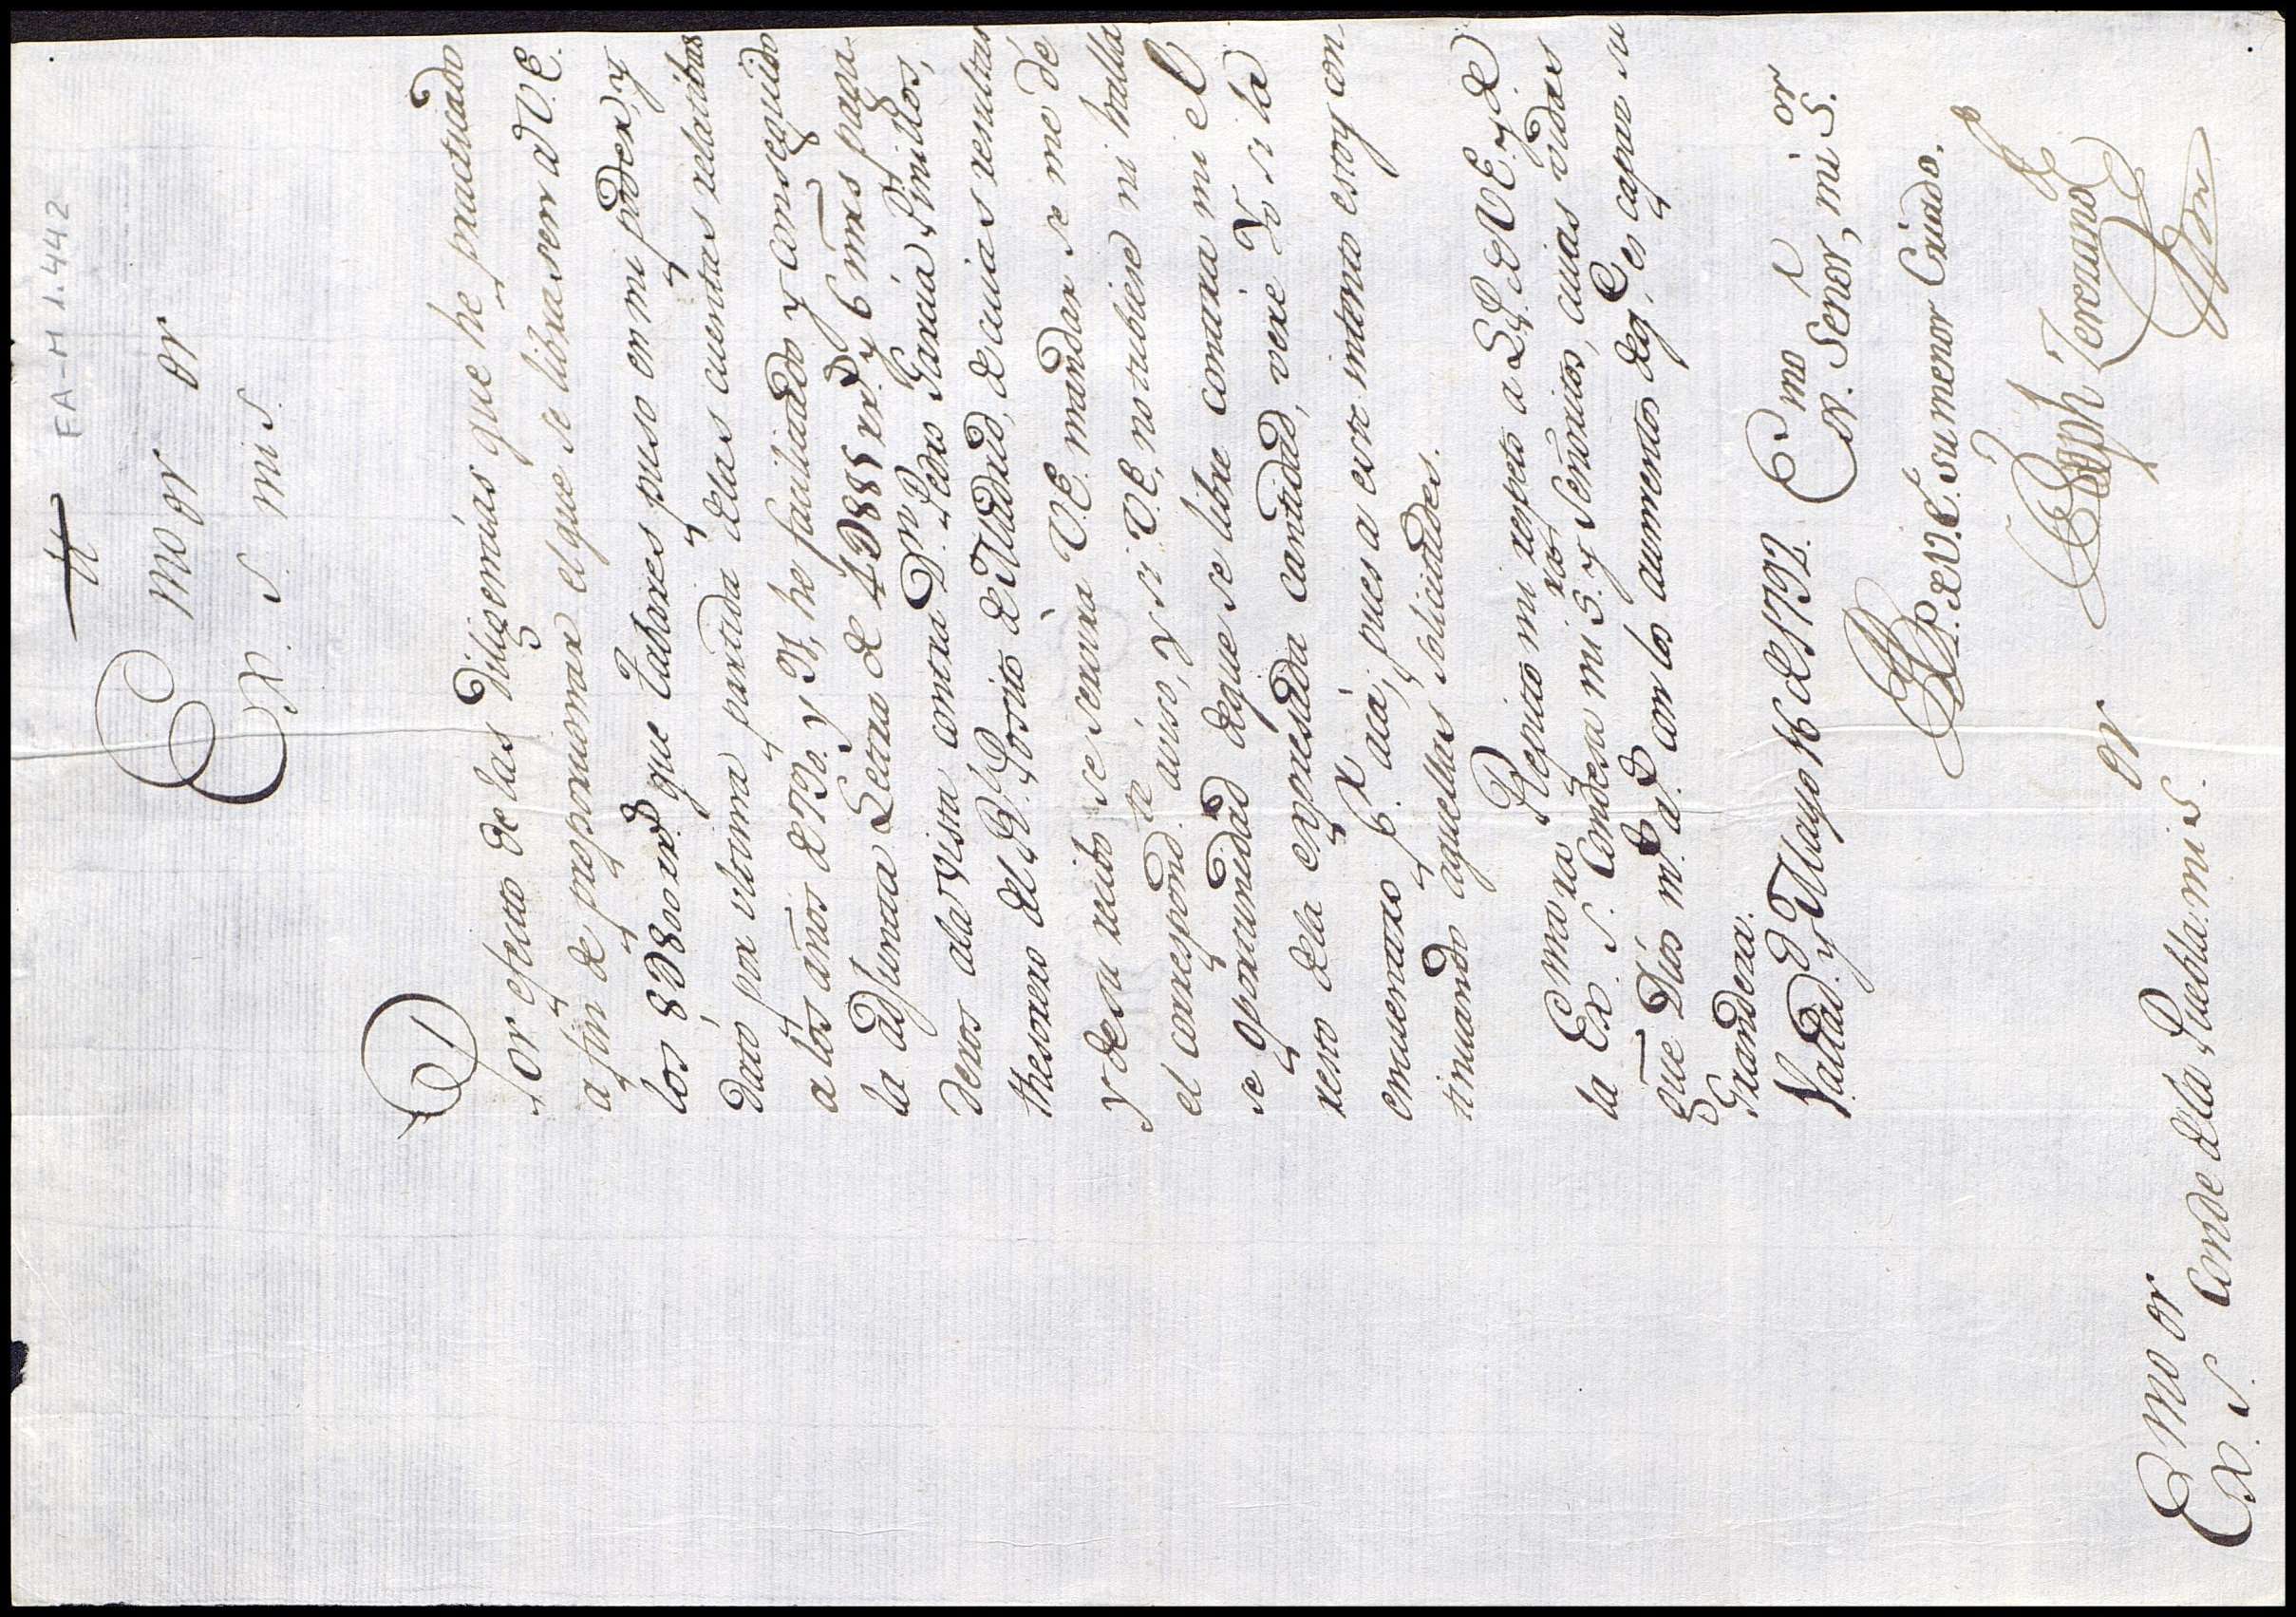 FA-H 1.442
Ex.mo S.or mi S.or
Por efecto de las diligencias que he practicado
a fin de proporcionar el que se librasen a V.E.
los 8D800 r.s que Tabares puso en mi poder, y
daró por vltima partida delas cuentas relatibas
a los años de 730. y 31, he facilitado y conseguido
la adjunta Letra de 4D885 r.s y 6 mrs paga-
deros ala vista contra D.n Pedro Garcia Pinillos,
thesorero del R.l Posito de Madrid, de cuias resultas
y de su recibo se servira V.E. mandar se me dé
el correspond.te aviso, y si V.E. no tubiese ni halla
se oportunidad deque se libre contra mi el
resto dela expresada cantidad, veré Yo si la
encuentro p.r acá, pues a este intento estoy con
tinuando aquellas solicitudes.
Repito mi respeto a L.P. de V.E. y de
la Ex.ma S.ra Condesa mi S.ra y Señoritos, cuias vidas
gue Dios m.s a.s con los aumentos deq.e es capaz su
Grandeza.
Vallad.d y Mayo 16 de 1732. Ex.mo Señor, mi S.or
B.L.P. de V.E. su menor Criado.
Joseph Zenzano
Ex.mo S.or Conde dela Puebla mi S.or